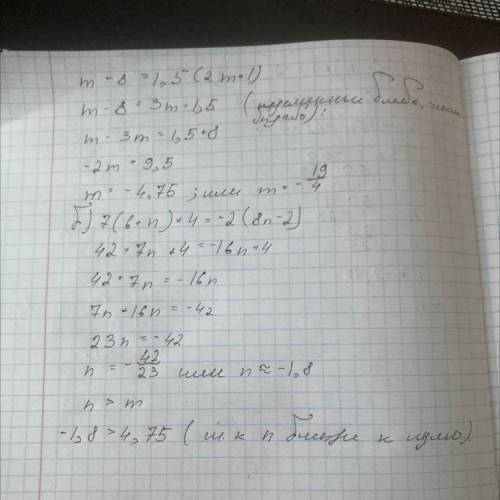 m - 8 = 1,5 (2m+1)
m - 8 = 3m + 1,5 (переменные влево, числа вправо);
m - 3m = 1,5 + 8
-2m = 9,5
m = -4,75 ; или m = - 19/4
б) 7(6+n)+4 = -2(8n-2)
42 + 7n + 4 = -16n + 4
42 + 7n = -16n
7n + 16n = -42
23n = -42
n = - 42/23 или n ≈ -1,8
n > m
-1,8 > 4,75 (т.к n ближе к нулю).